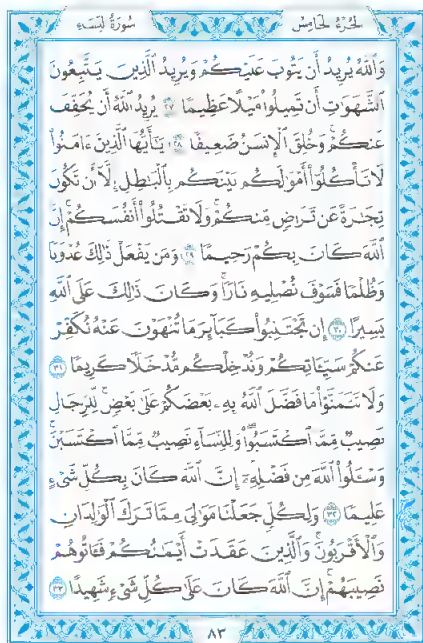 الجزء الخامس
سورة النساء
وَٱللَّهُ يُرِيدُ أَن يَتُوبَ عَلَيْكُمْ وَيُرِيدُ ٱلَّذِينَ يَتَّبِعُونَ
ٱلشَّهَوَٰتِ أَن تَمِيلُوا۟ مَيْلًا عَظِيمًا ٢٧ يُرِيدُ ٱللَّهُ أَن يُخَفِّفَ
عَنكُمْ ۚ وَخُلِقَ ٱلْإِنسَٰنُ ضَعِيفًا ٢٨ يَٰٓأَيُّهَا ٱلَّذِينَ ءَامَنُوا۟
لَا تَأْكُلُوٓا۟ أَمْوَٰلَكُم بَيْنَكُم بِٱلْبَٰطِلِ إِلَّآ أَن تَكُونَ
تِجَٰرَةً عَن تَرَاضٍ مِّنكُمْ ۚ وَلَا تَقْتُلُوٓا۟ أَنفُسَكُمْ ۚ إِنَّ
ٱللَّهَ كَانَ بِكُمْ رَحِيمًا ٢٩ وَمَن يَفْعَلْ ذَٰلِكَ عُدْوَٰنًا
وَظُلْمًا فَسَوْفَ نُصْلِيهِ نَارًا ۚ وَكَانَ ذَٰلِكَ عَلَى ٱللَّهِ
يَسِيرًا ٣٠ إِن تَجْتَنِبُوا۟ كَبَآئِرَ مَا تُنْهَوْنَ عَنْهُ نُكَفِّرْ
عَنكُمْ سَيِّـَٔاتِكُمْ وَنُدْخِلْكُم مُّدْخَلًا كَرِيمًا ٣١
وَلَا تَتَمَنَّوْا۟ مَا فَضَّلَ ٱللَّهُ بِهِۦ بَعْضَكُمْ عَلَىٰ بَعْضٍ ۚ لِّلرِّجَالِ
نَصِيبٌ مِّمَّا ٱكْتَسَبُوا۟ ۖ وَلِلنِّسَآءِ نَصِيبٌ مِّمَّا ٱكْتَسَبْنَ ۚ
وَسْـَٔلُوا۟ ٱللَّهَ مِن فَضْلِهِۦٓ ۗ إِنَّ ٱللَّهَ كَانَ بِكُلِّ شَىْءٍ
عَلِيمًا ٣٢ وَلِكُلٍّ جَعَلْنَا مَوَٰلِىَ مِمَّا تَرَكَ ٱلْوَٰلِدَانِ
وَٱلْأَقْرَبُونَ ۚ وَٱلَّذِينَ عَقَدَتْ أَيْمَٰنُكُمْ فَـَٔاتُوهُمْ
نَصِيبَهُمْ ۚ إِنَّ ٱللَّهَ كَانَ عَلَىٰ كُلِّ شَىْءٍ شَهِيدًا ٣٣
٨٣